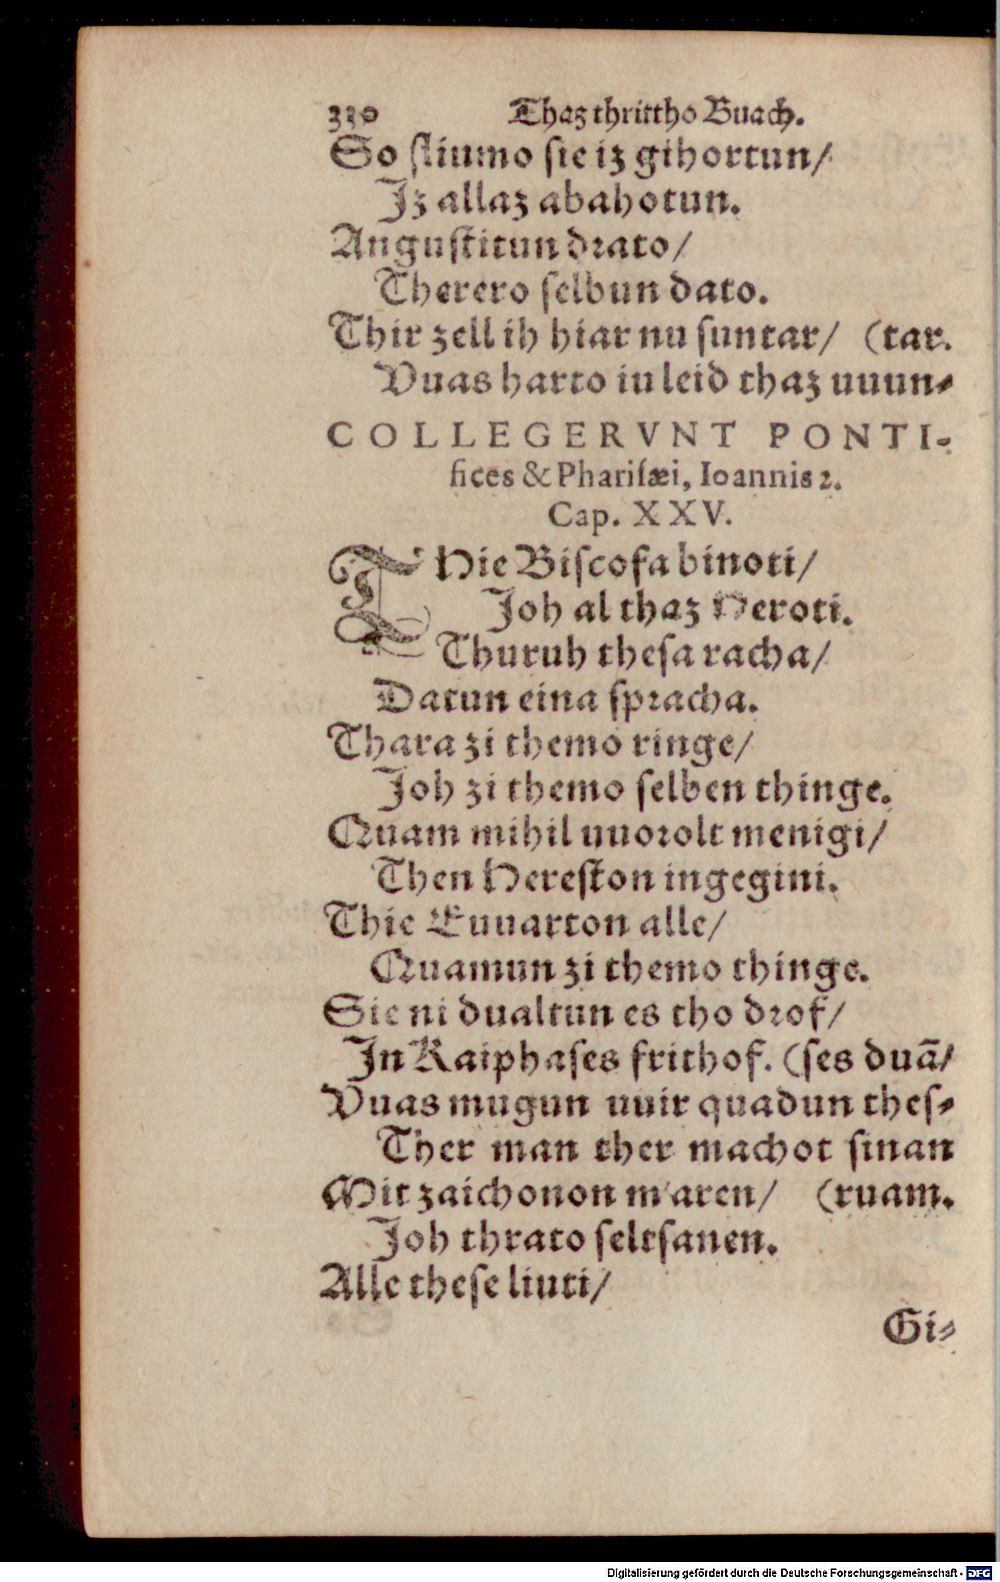 330 Thaz thrittho Buach.
So sliumo sie iz gihortun/
Jz allaz abahotun.
Angustitun drato/
Therero selbun dato.
Thir zell ih hiar nu suntar/ (tar.
Vuas harto iu leid thaz uuun⸗
COLLEGERVNT PONTI-
fices & Pharisæi, Ioannis 2.
Cap. XXV.
THie Biscofa binoti/
Joh al thaz Heroti.
Thuruh thesa racha/
Datun eina spracha.
Thara zi themo ringe/
Joh zi themo selben thinge.
Quam mihil uuorolt menigi/
Then Hereston ingegini.
Thie Euuarton alle/
Quamun zi themo thinge.
Sie ni dualtun es tho drof/
In Kaiphases frithof. (ses duā/
Vuas mugun uuir quadun thes⸗
Ther man ther machot sinan
Mit zaichonon maren/ (ruam.
Joh thrato seltsanen.
Alle these liuti/
Gi⸗
Digitalisierung gefördert durch die Deutsche Forschungsgemeinschaft - DFG